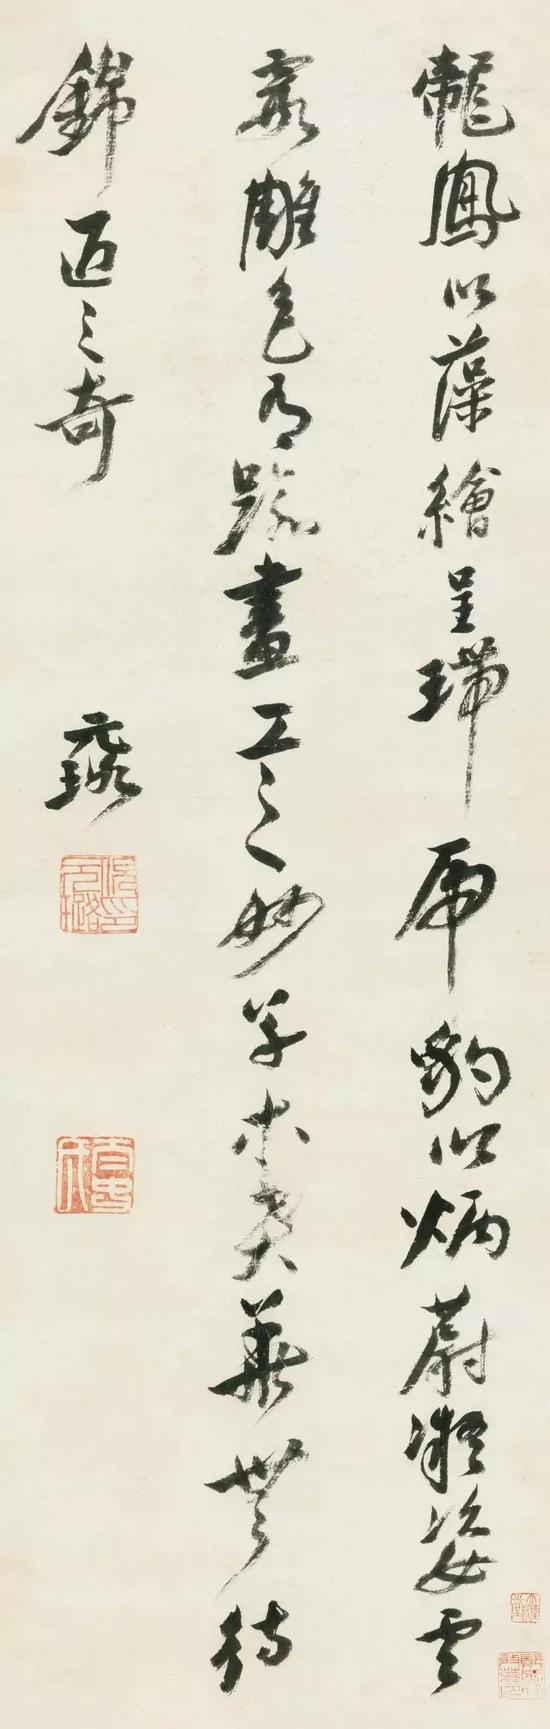 龍鳳以藻繪呈瑞虎豹以炳蔚凝姿雲
霞雕色有踰畫工之妙草木賁華無待
錦匠之奇
元璐